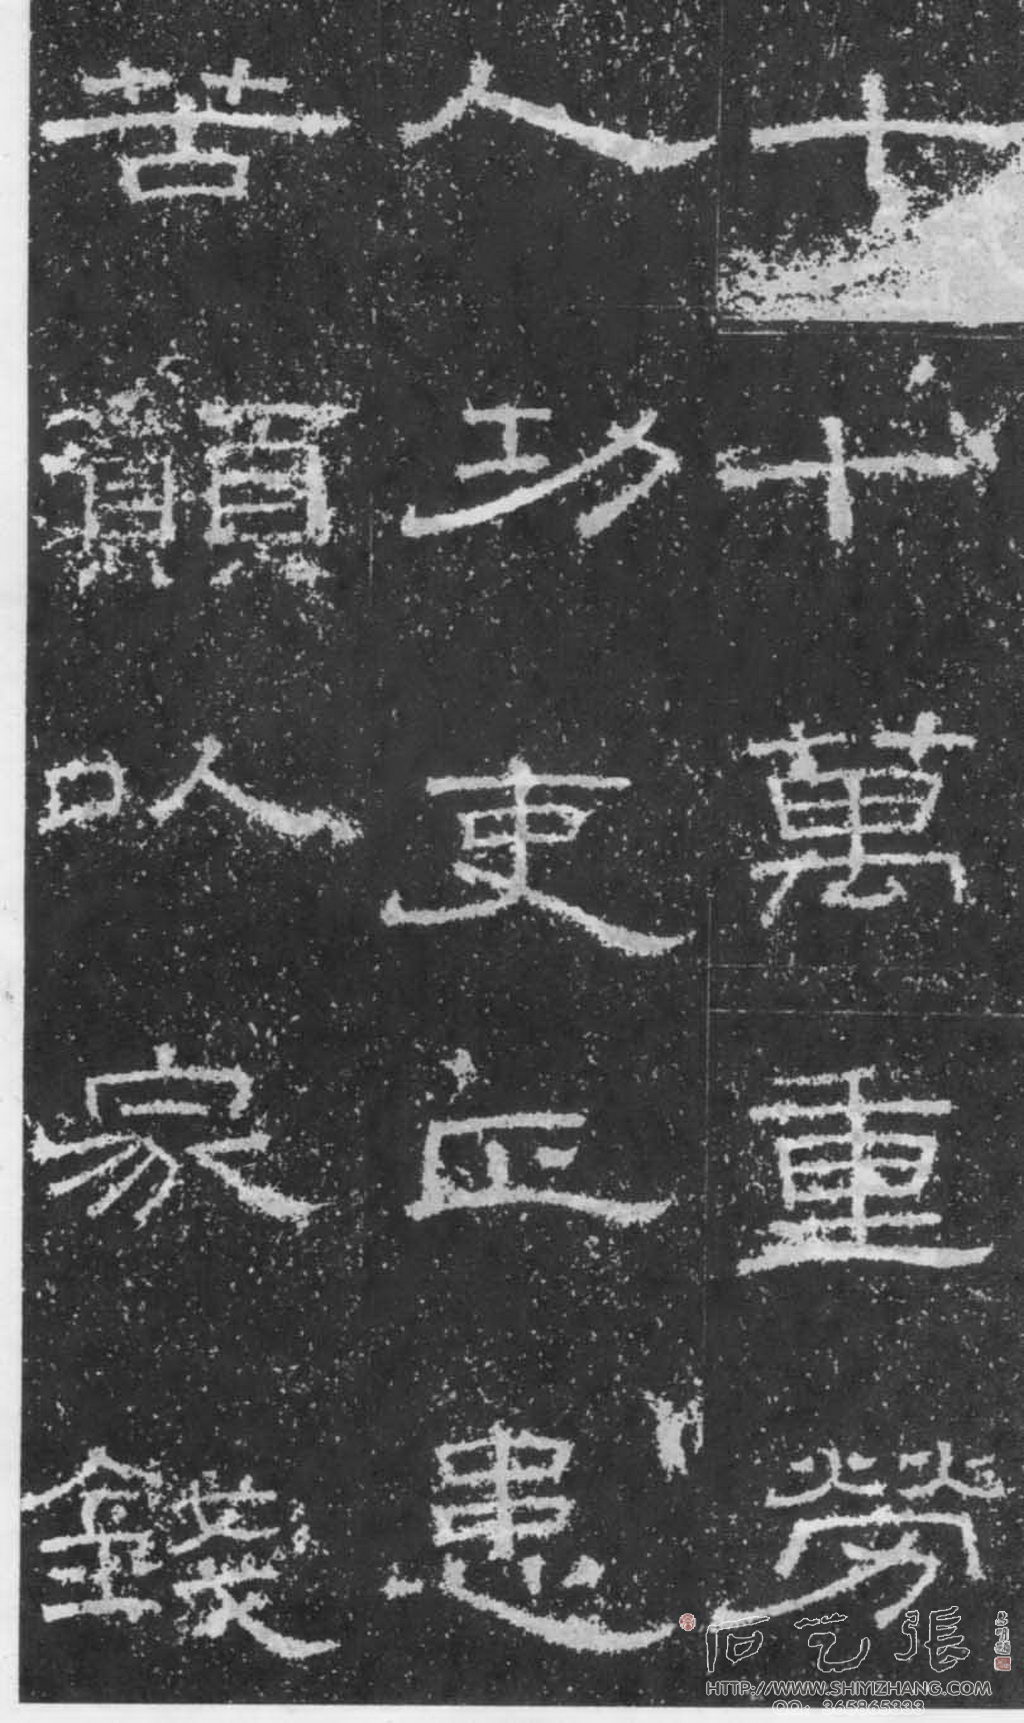 七十萬重勞
人功吏正患
苦願以家錢
石艺張
HTTP://WWW.SHIYIZHANG.COM
QQ：365865333